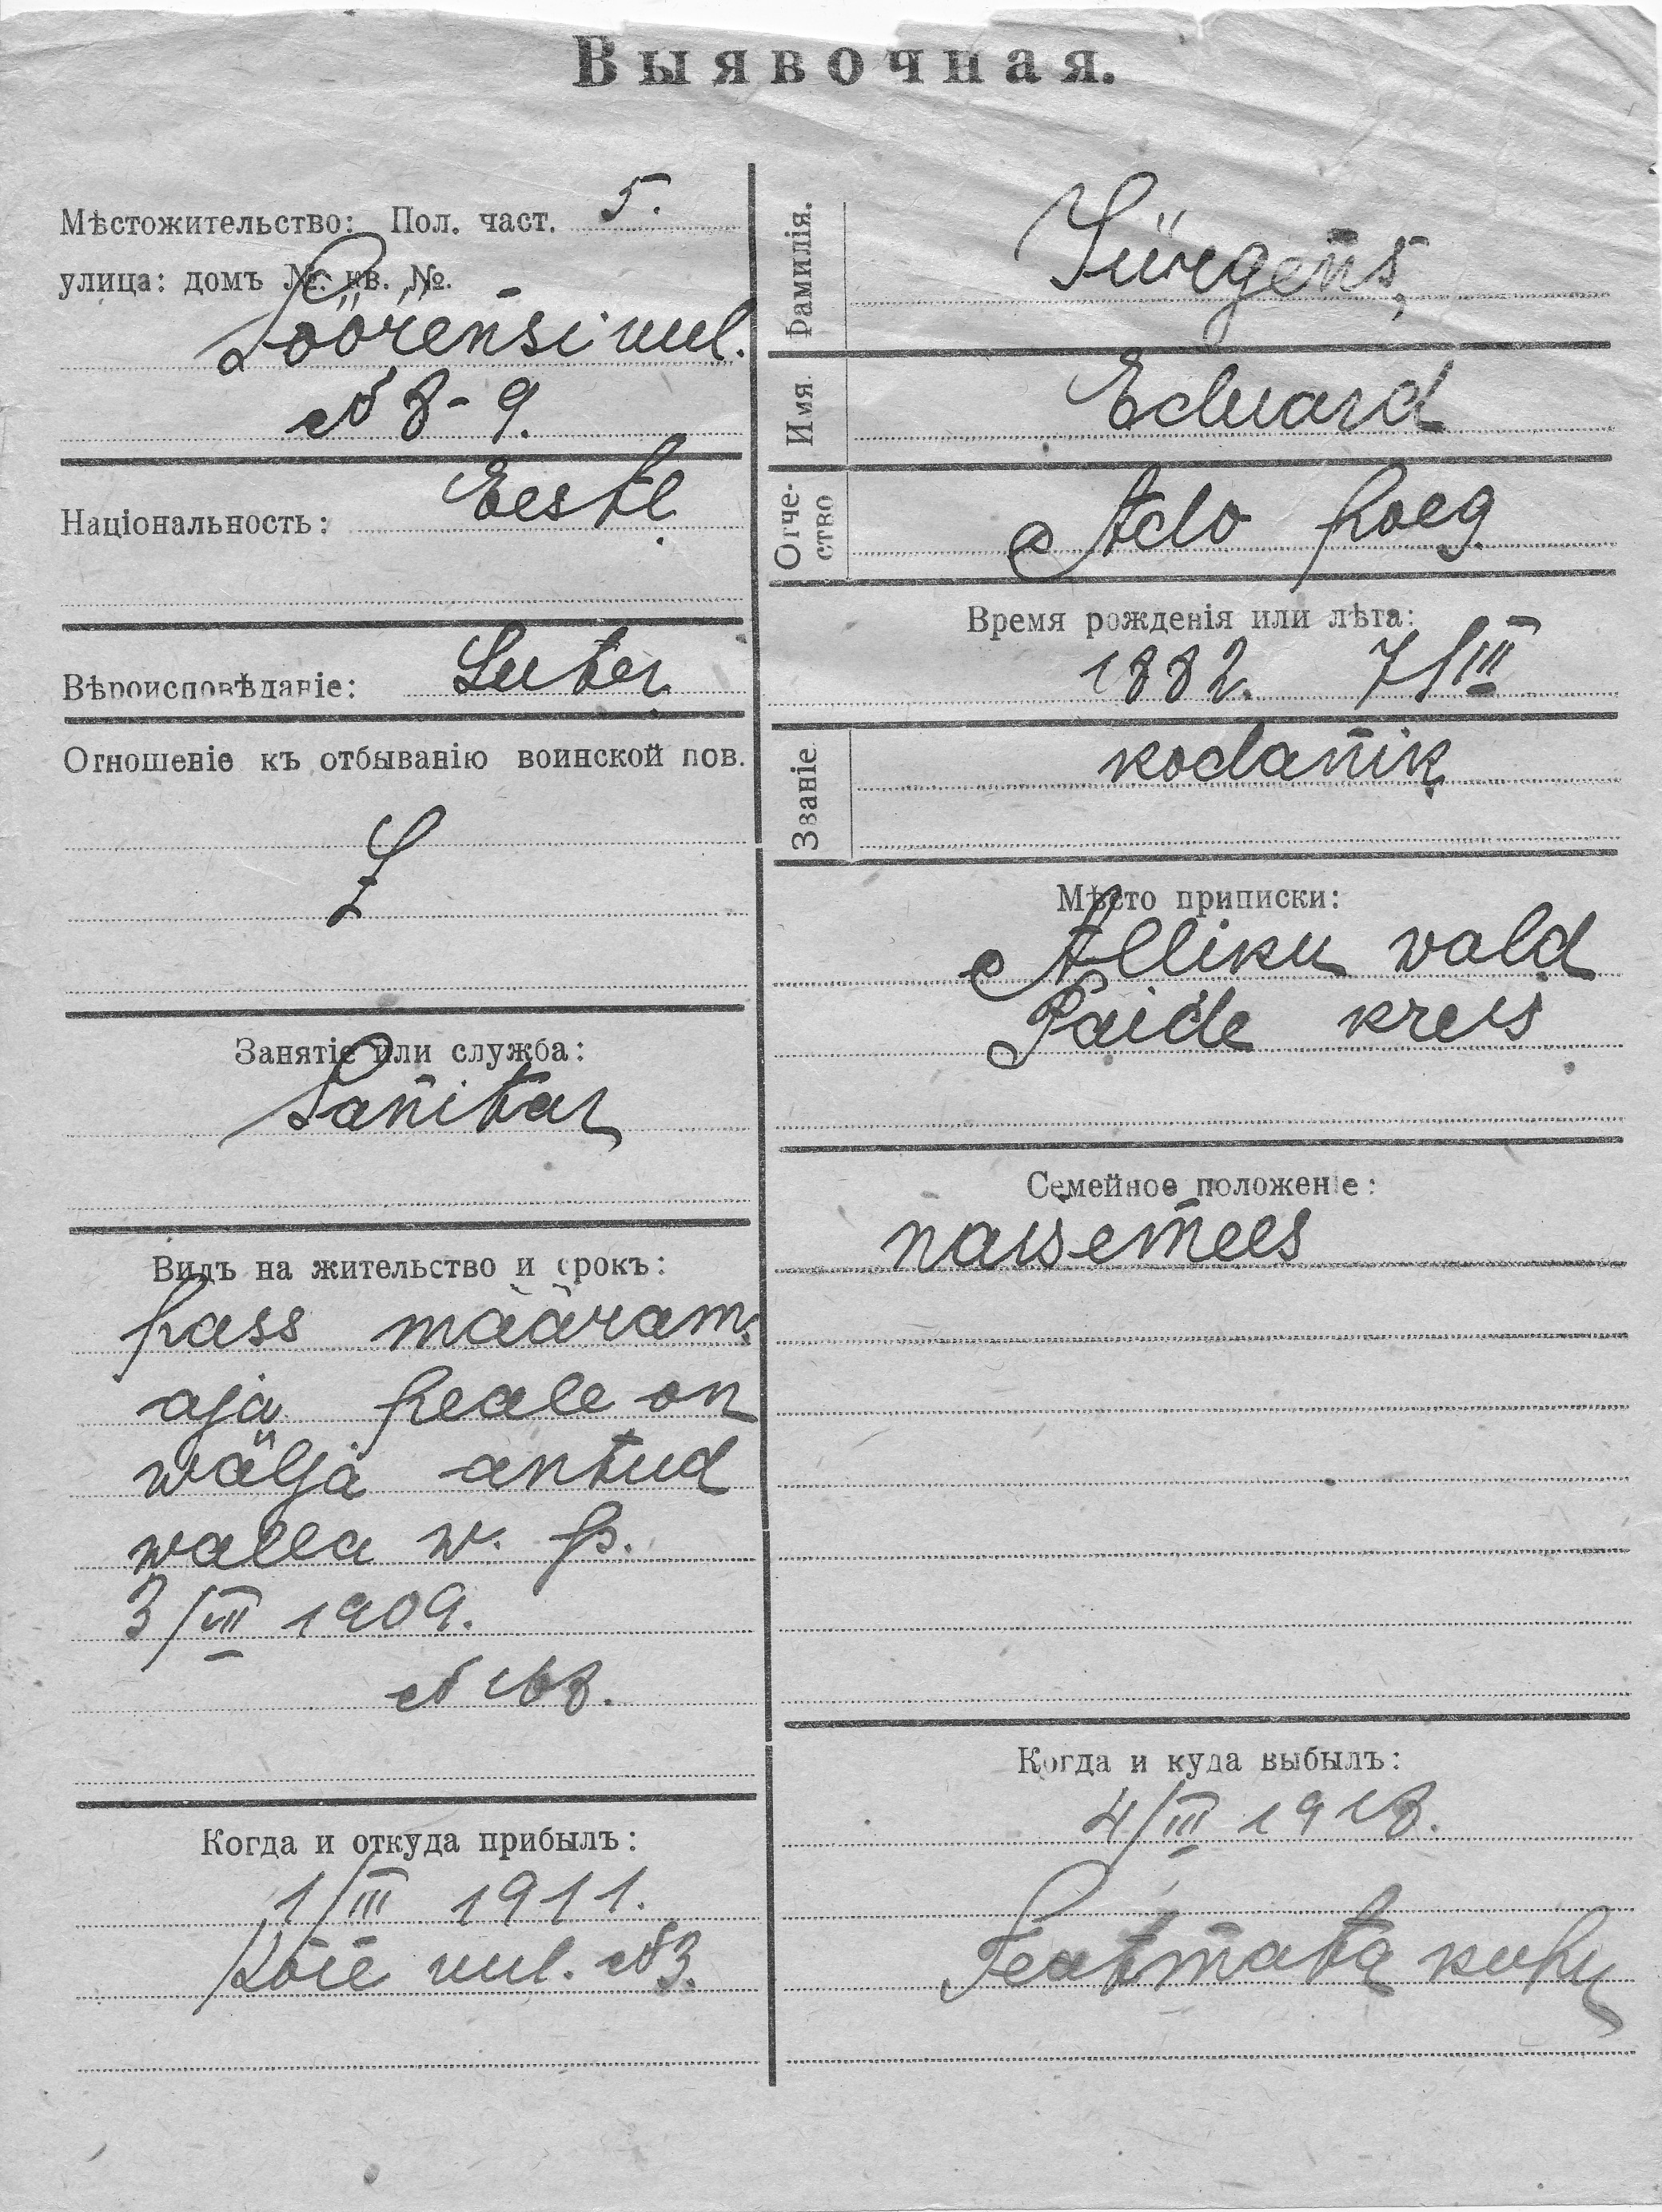 Выявочная.
Мѣстожительство: Пол. част. 5.
улица: домъ №. кв. №.
Söörensi uul.
№ 8-9.
Національность: Eestl.
Вѣроисповѣданіе: Luter.
Отношеніе къ отбыванію воинской пов.
Занятіе или служба:
Sanitar
Видъ на жительство и срокъ:
pass määram.
aja peale on
wälja antud
walla w. p.
3/VII 1909.
№ 168.
Когда и откуда прибылъ:
1/III 1911.
Köie uul. №3.
Фамилія. Jürgens,
Имя Eduard
Отче-
ство
Ado poeg.
Время рожденія или лѣта:
1882. 7/III
Званіе kodanik
Мѣсто приписки:
Alliku wald
Paide kreis
Семейное положеніе:
naisemees
Когда и куда выбылъ:
4/III 1918.
Teatmata kuhu